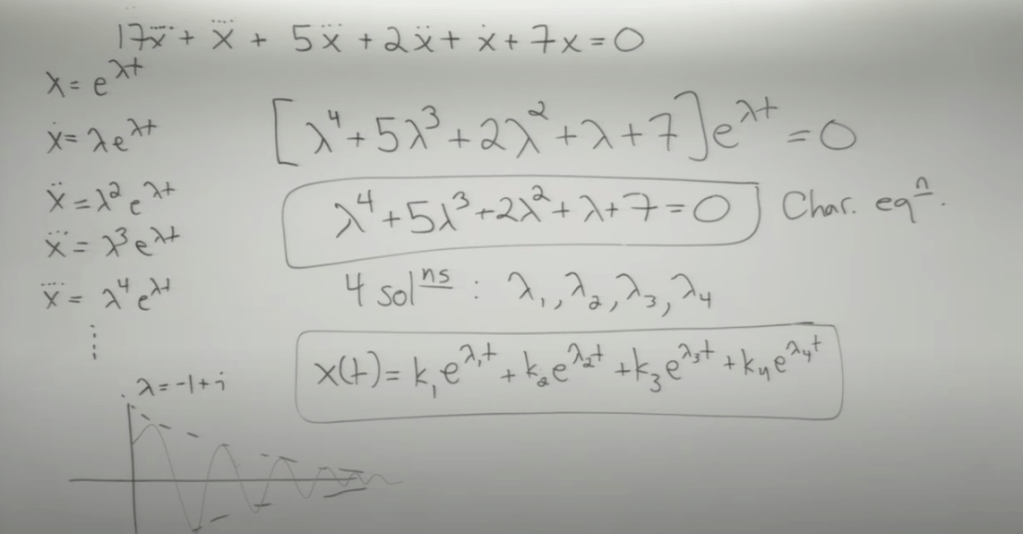 17x⃜̇ + x⃜ + 5x⃛ + 2ẍ + ẋ + 7x = 0
x = e^λt
ẋ = λe^λt
ẍ = λ²e^λt
x⃛ = λ³e^λt
x⃜ = λ⁴e^λt
⋮
[λ⁴ + 5λ³ + 2λ² + λ + 7]e^λt = 0
λ⁴ + 5λ³ + 2λ² + λ + 7 = 0 Char. eqⁿ.
4 solⁿˢ : λ₁, λ₂, λ₃, λ₄
x(t) = k₁e^λ₁t + k₂e^λ₂t + k₃e^λ₃t + k₄e^λ₄t
λ = -1 + i